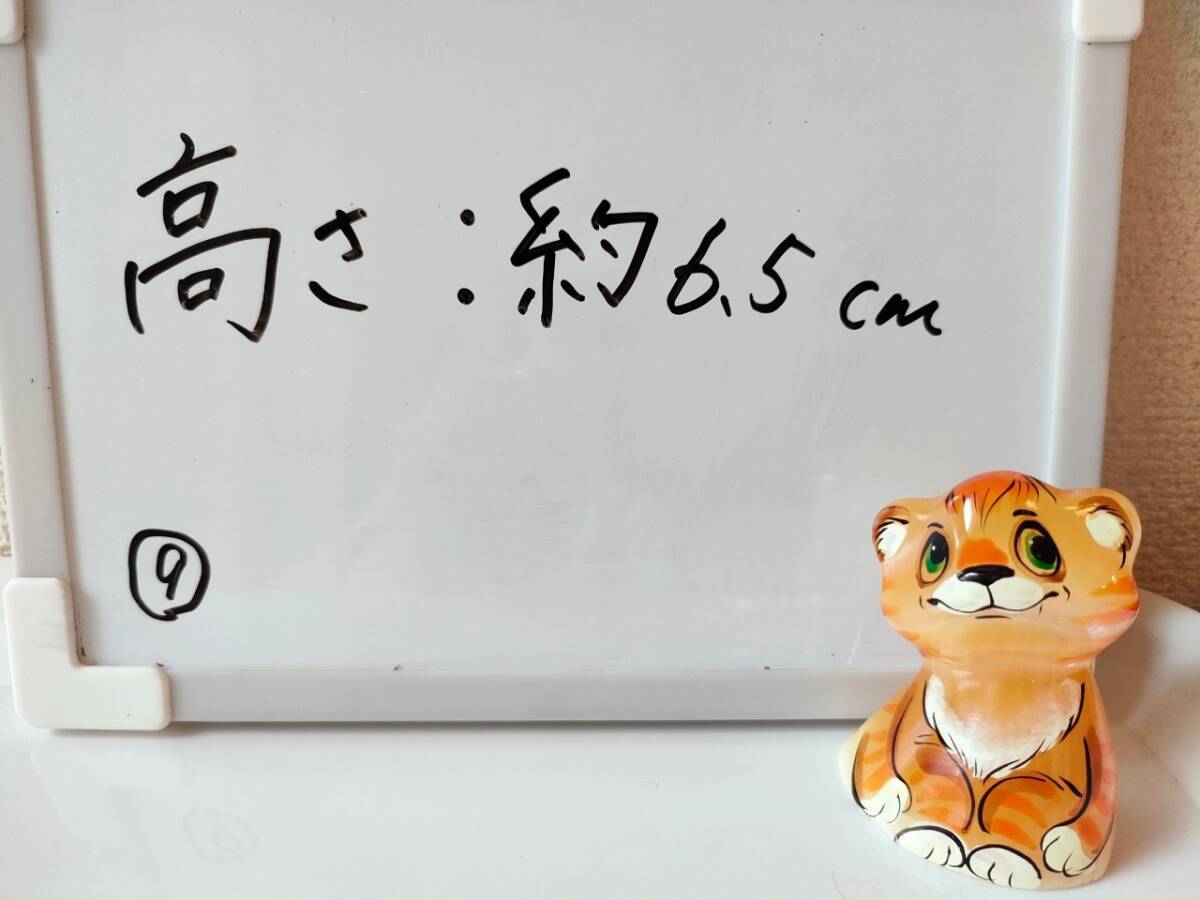 高さ：約6.5cm
⑨